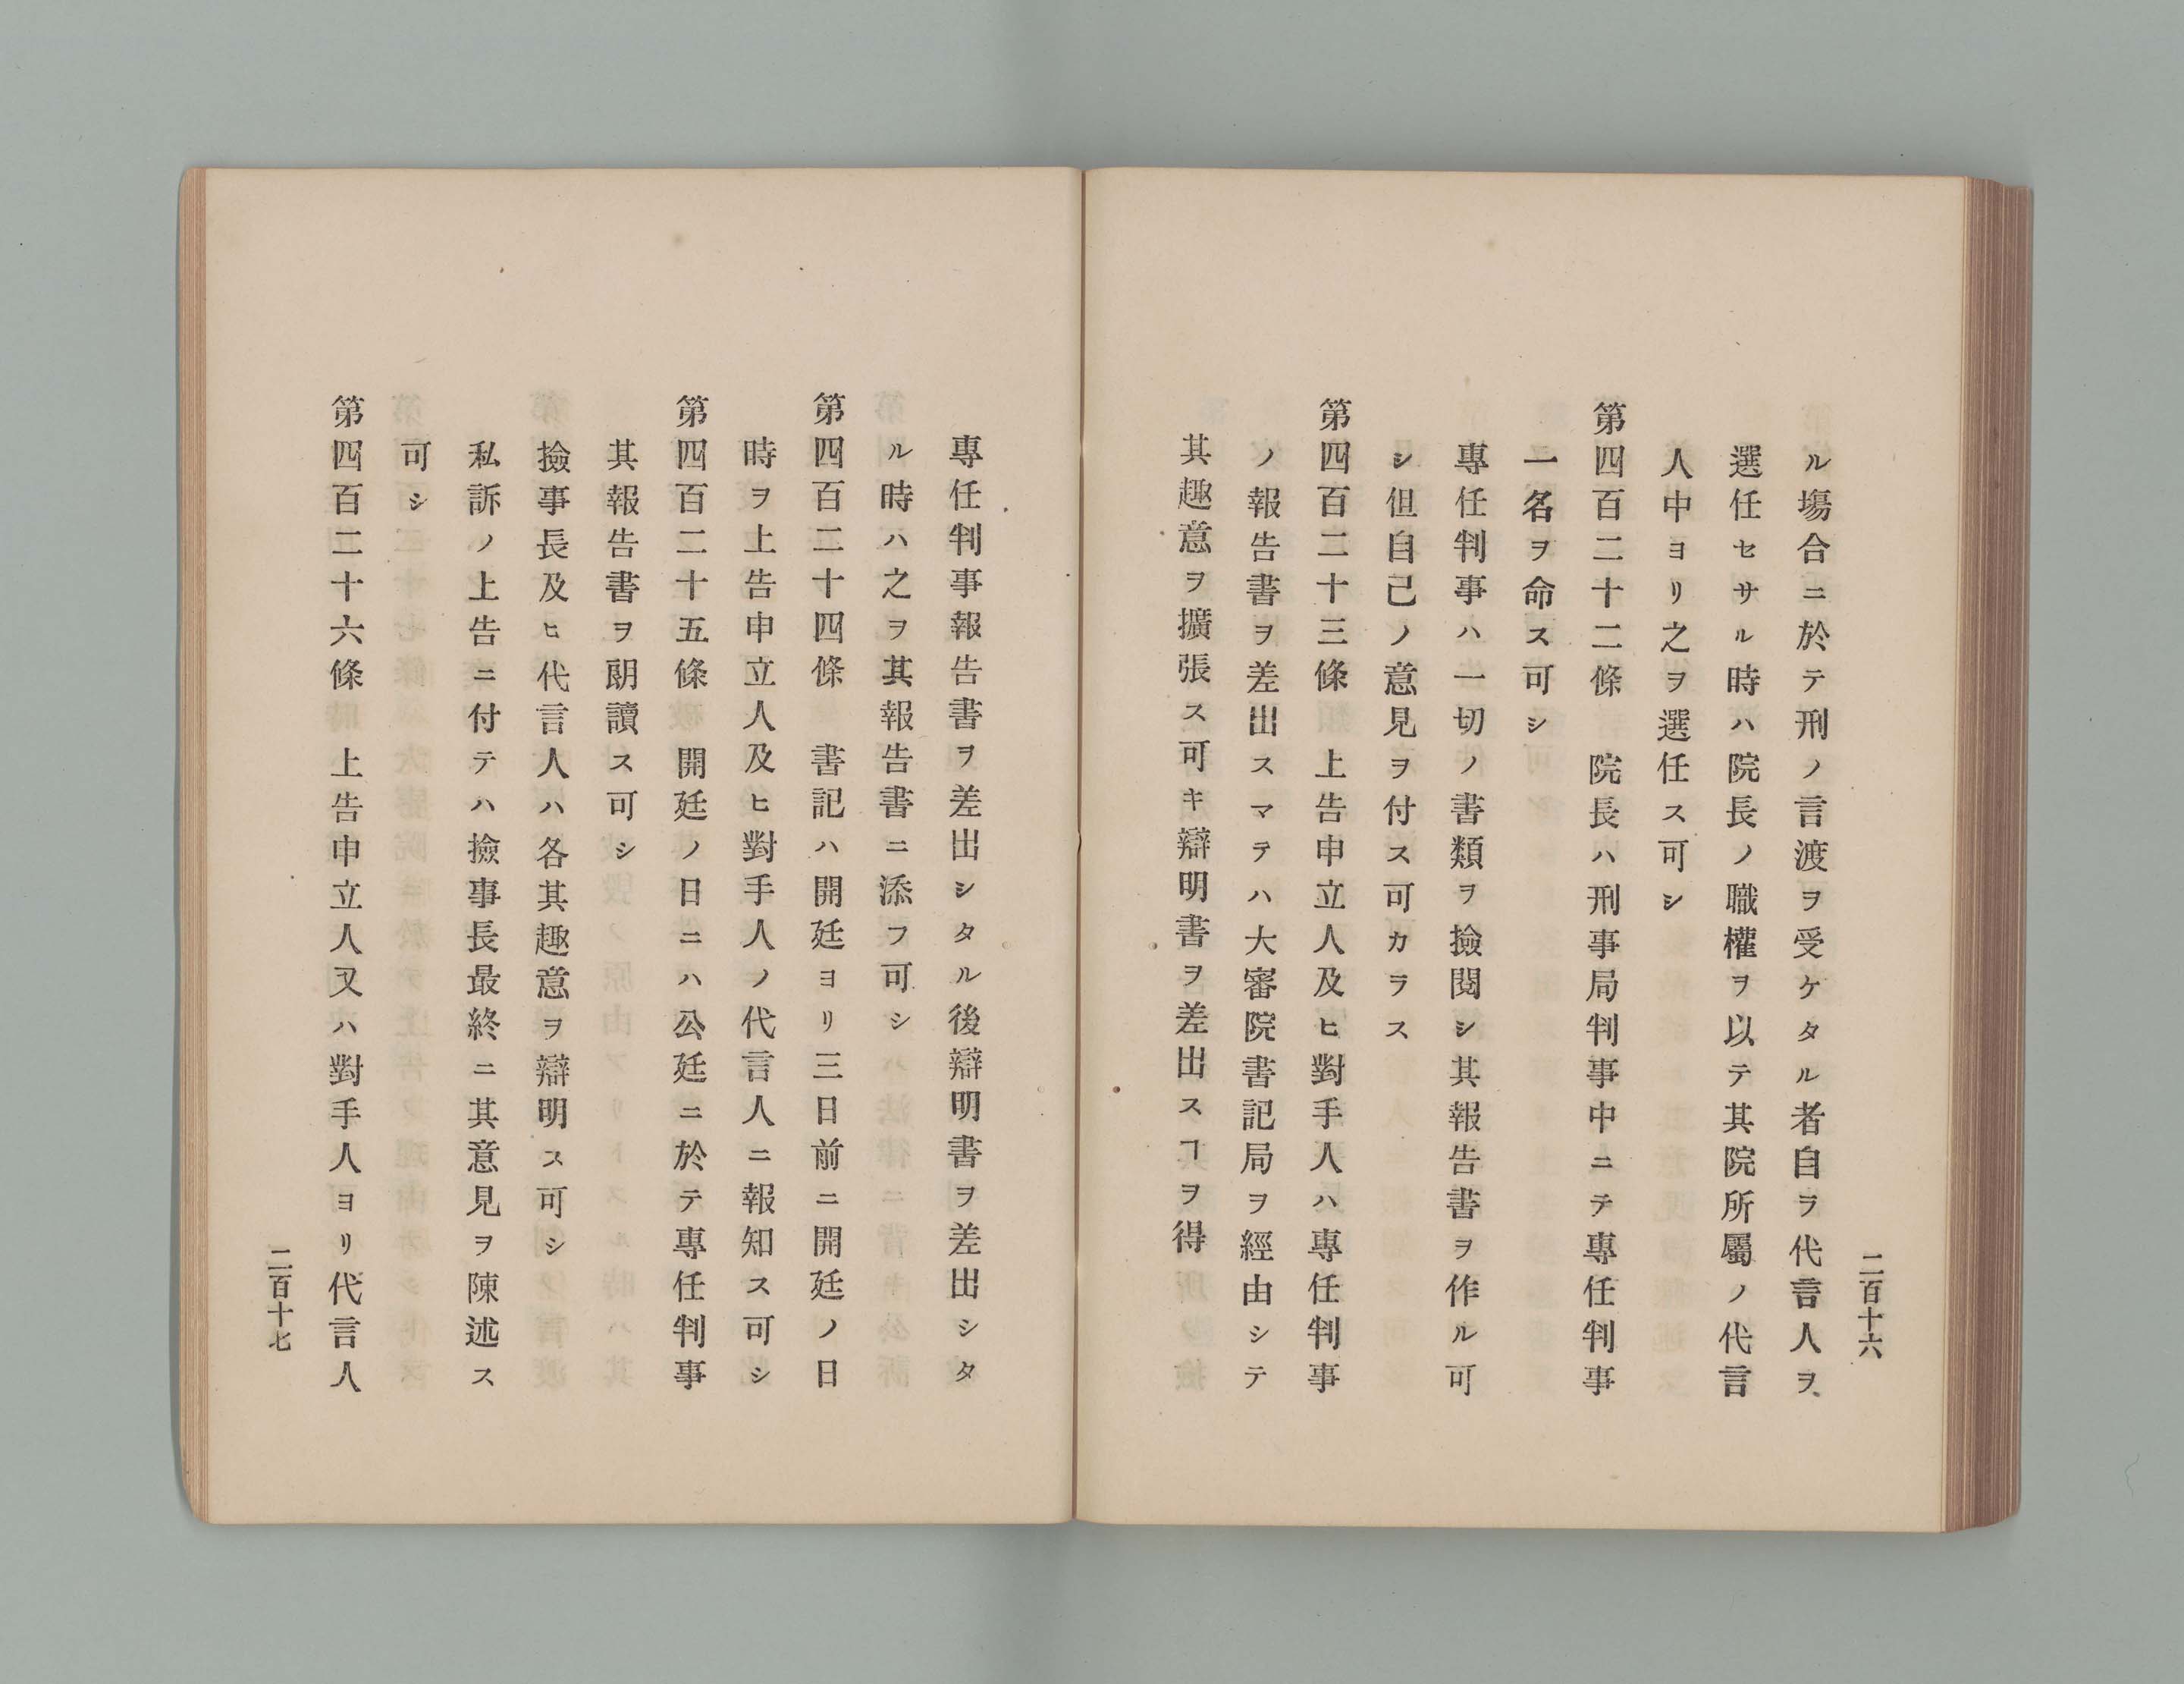 二百十六
ル塲合ニ於テ刑ノ言渡ヲ受ケタル者自ラ代言人ヲ
選任セサル時ハ院長ノ職權ヲ以テ其院所屬ノ代言
人中ヨリ之ヲ選任ス可シ
第四百二十二條　院長ハ刑事局判事中ニテ專任判事
一名ヲ命ス可シ
專任判事ハ一切ノ書類ヲ撿閱シ其報告書ヲ作ル可
シ但自己ノ意見ヲ付ス可カラス
第四百二十三條　上告申立人及ヒ對手人ハ專任判事
ノ報告書ヲ差出スマテハ大審院書記局ヲ經由シテ
其趣意ヲ擴張ス可キ辯明書ヲ差出スヿヲ得
專任判事報告書ヲ差出シタル後辯明書ヲ差出シタ
ル時ハ之ヲ其報告書ニ添フ可シ
第四百二十四條　書記ハ開廷ヨリ三日前ニ開廷ノ日
時ヲ上告申立人及ヒ對手人ノ代言人ニ報知ス可シ
第四百二十五條　開廷ノ日ニハ公廷ニ於テ專任判事
其報告書ヲ朗讀ス可シ
撿事長及ヒ代言人ハ各其趣意ヲ辯明ス可シ
私訴ノ上告ニ付テハ撿事長最終ニ其意見ヲ陳述ス
可シ
第四百二十六條　上告申立人又ハ對手人ヨリ代言人
二百十七